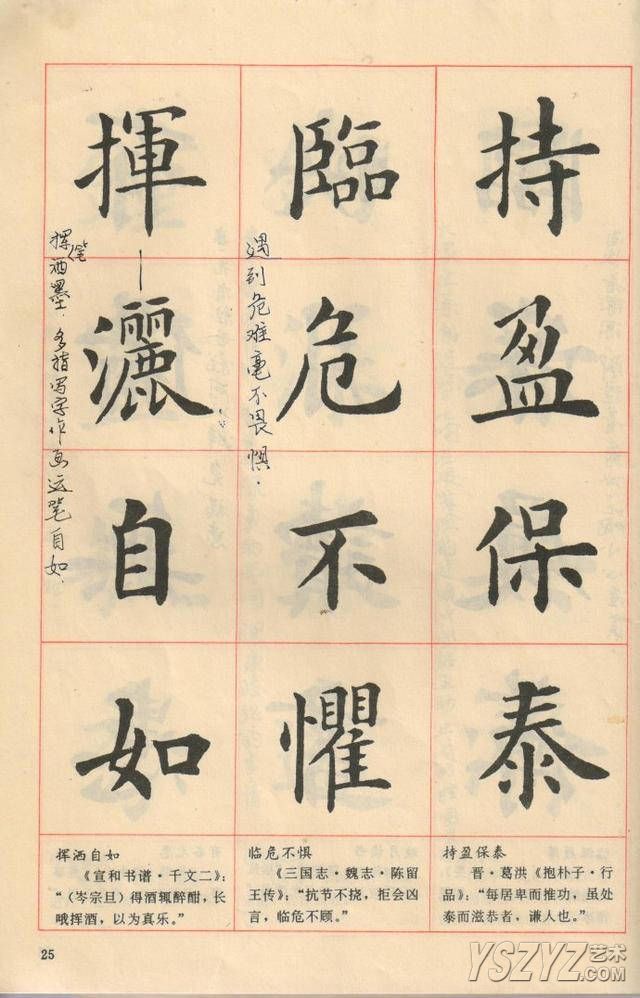 持盈保泰
臨危不懼
遇到危难毫不畏惧.
揮灑自如
挥笔洒墨.多指写字作画运笔自如.
挥洒自如
《宣和书谱·千文二》:
“(岑宗旦)得酒辄醉酣,长
哦挥洒,以为真乐。”
临危不惧
《三国志·魏志·陈留
王传》:“抗节不挠,拒会凶
言,临危不顾。”
持盈保泰
晋·葛洪《抱朴子·行
品》:“每居卑而推功,虽处
泰而滋恭者,谦人也。”
25
YSZYZ艺术
.COM